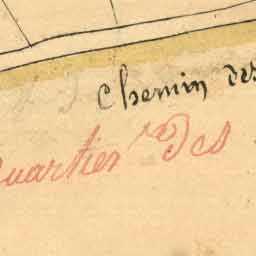 Chemin des
Quartier des